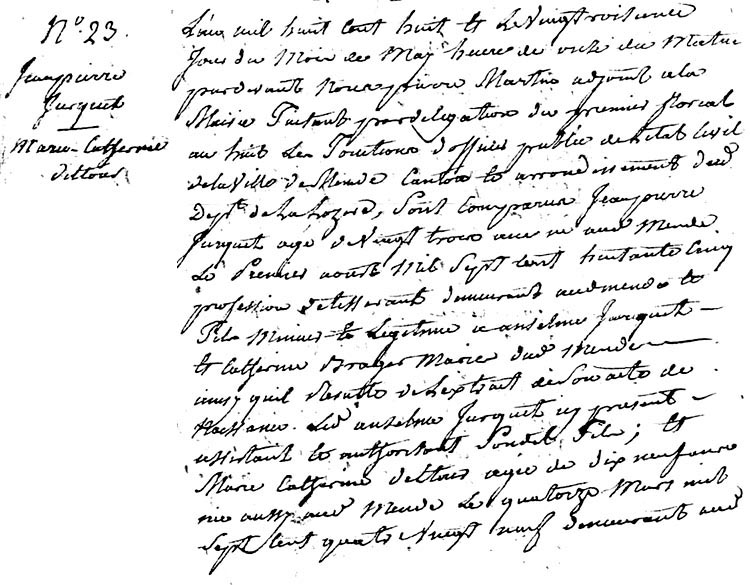 N°. 23.
Jeanpierre
Jurquet
Marie-Catherine
deltour
L'an mil huit cent huit et le Vingt troisieme
Jour du Mois de May heure de onze du Matin
pardevant Nous pierre Martin adjoint a la
Mairie Faisant par delegation du premier floreal
an huit Les Fonctions d'officier public de l'etat Civil
de la Ville de Mende Canton et arrondissement dud
Dept. de La Lozere, Sont Comparus Jeanpierre
Jurquet agé de Vingt trois ans né aud Mende
Le Premier aoust Mil Sept Cent huitante Cinq
profession de tisserant demeurant aud mende
Fils Mineur et Legitime a anselme Jurquet
et Catherine Brager Mariés dud Mende
ainsy quil Resulte de L'extrait de Son acte de
Naissance. Led anselme Jurquet icy present
assistant et authorisant Sondit Fils; et
Marie Catherine deltour agée de dix neuf ans
née aussy aud Mende Le quatorze Mars mil
Sept Cent quatre Vingt neuf demeurant aud